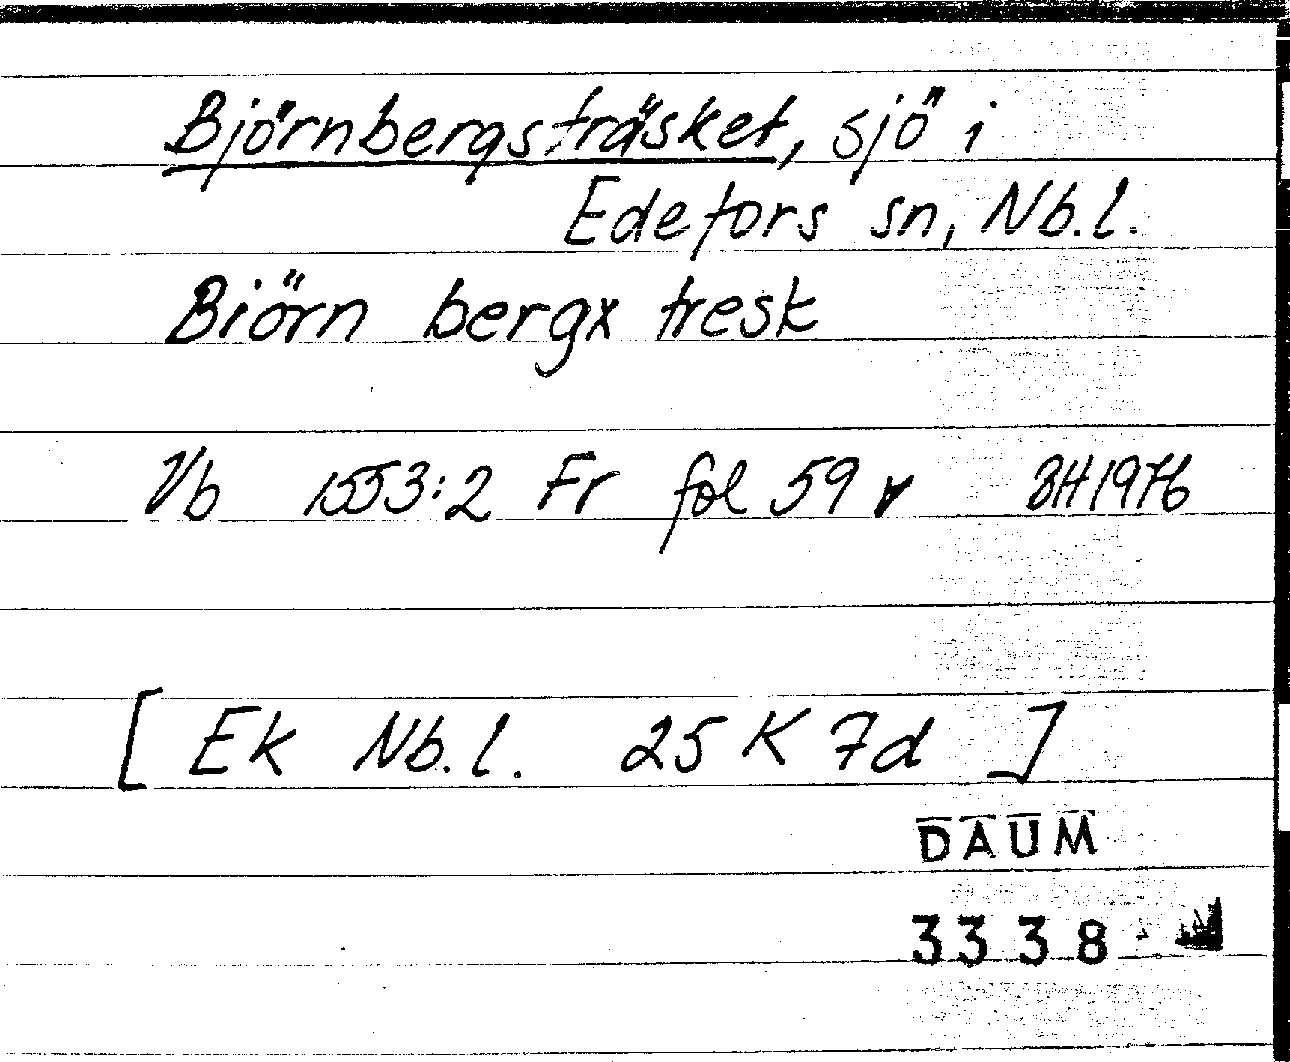 Björnbergsträsket, sjö i
Edefors sn, Nb.l.
Biörn bergx tresk
Vb 1553:2 Fr fol 59 v BH 1976
[ Ek Nb.l. 25 K 7d ]
DAUM
3338